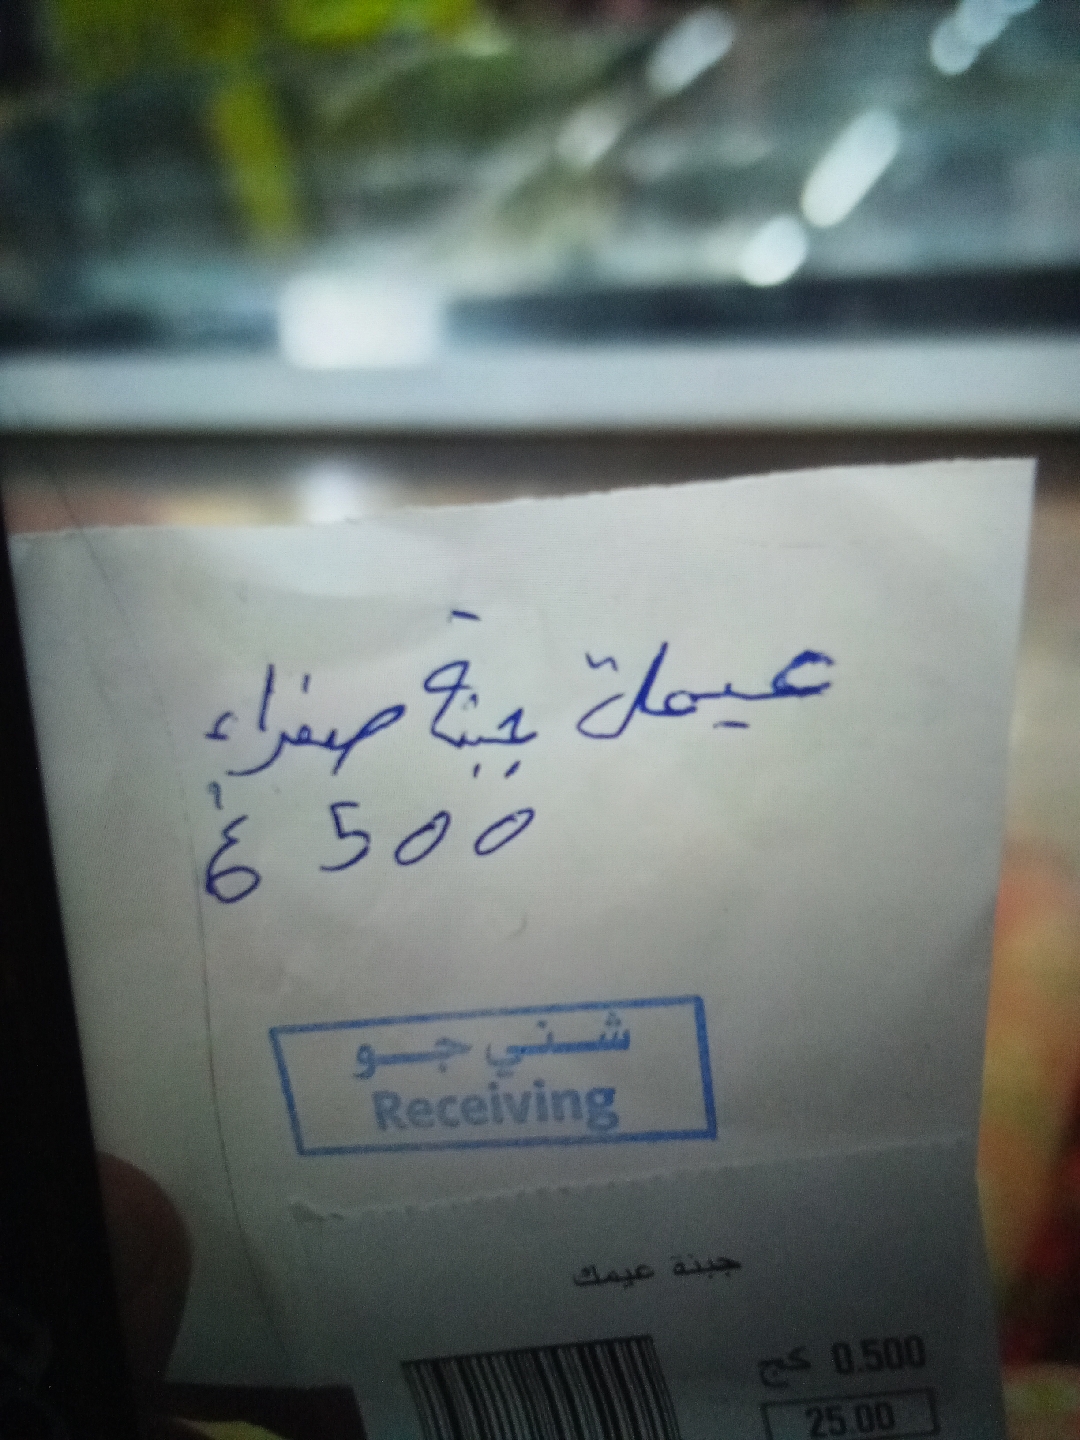 عيمك جبنة صفراء
500 غ
شني جو
Receiving
جبنة عيمك
0.500 كج
25.00